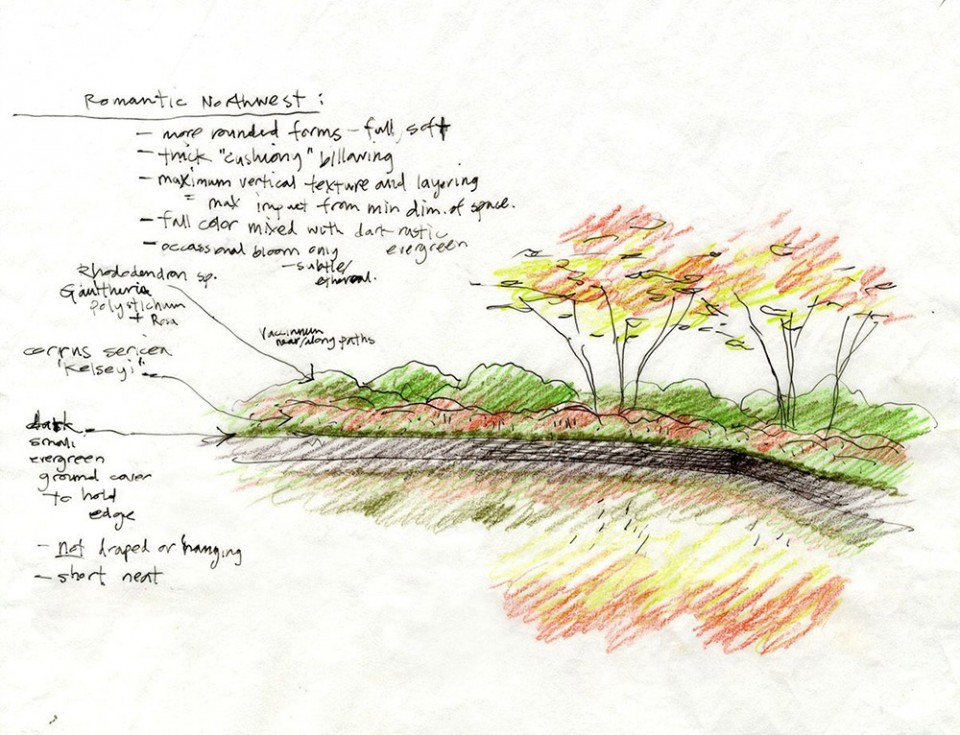 Romantic Northwest :
- more rounded forms - full, soft
- thick "cushiony" billowing
- maximum vertical texture and layering
= max impact from min dim. of space.
- fall color mixed with dark rustic evergreen
- occassional bloom only
- subtle/ ethereal.
Rhododendron sp.
Gaultheria
Polystichum
+ Rosa
Vaccinium
near/along paths
cornus sericea
"Kelseyi"
dark
small
evergreen
ground cover
to hold
edge
- not draped or hanging
- short neat